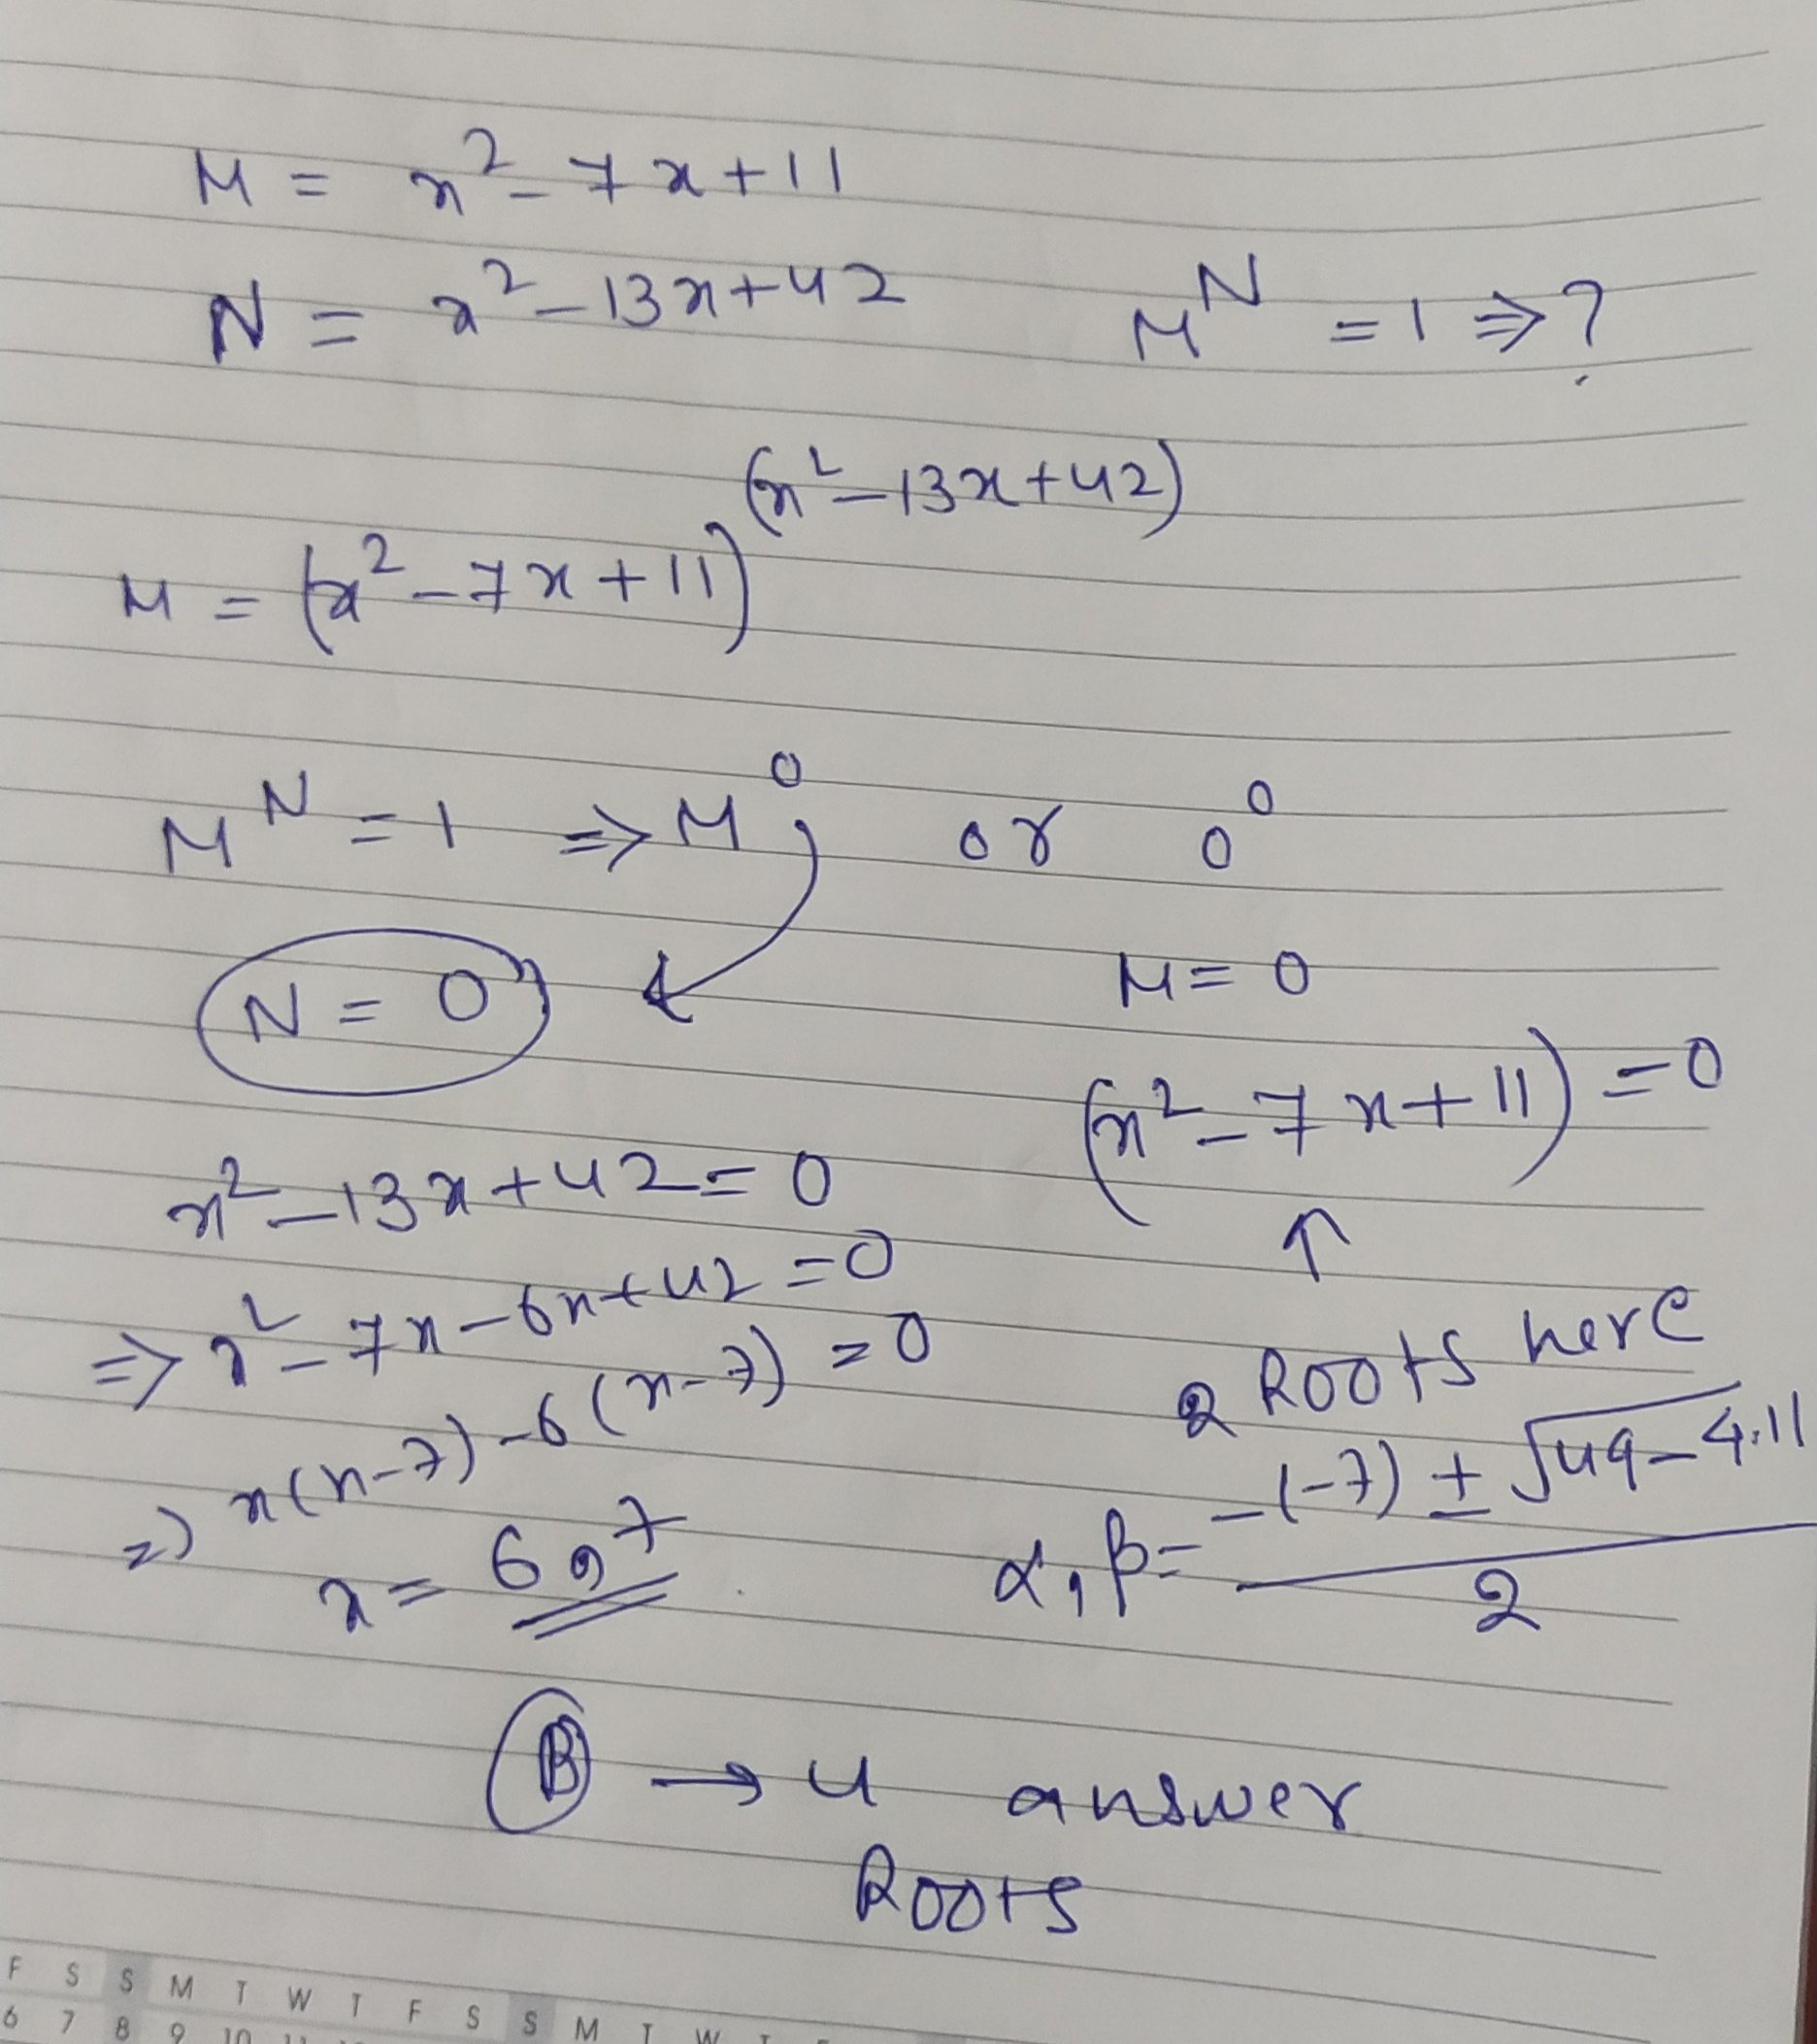 M = x² - 7x + 11
N = x² - 13x + 42
M^N = 1 ⇒ ?
M = (x² - 7x + 11)^(x² - 13x + 42)
M^N = 1 ⇒ M^0 or 0^0
N = 0
M = 0
(x² - 7x + 11) = 0
↑
x² - 13x + 42 = 0
⇒ x² - 7x - 6x + 42 = 0
⇒ x(x - 7) - 6(x - 7) = 0
x = 6, 7
2 Roots here
α, β = (-(-7) ± √(49 - 4.11))/2
B → 4 answer
Roots
F S S M T W T F S S M T W T F
6 7 8 9 10 11